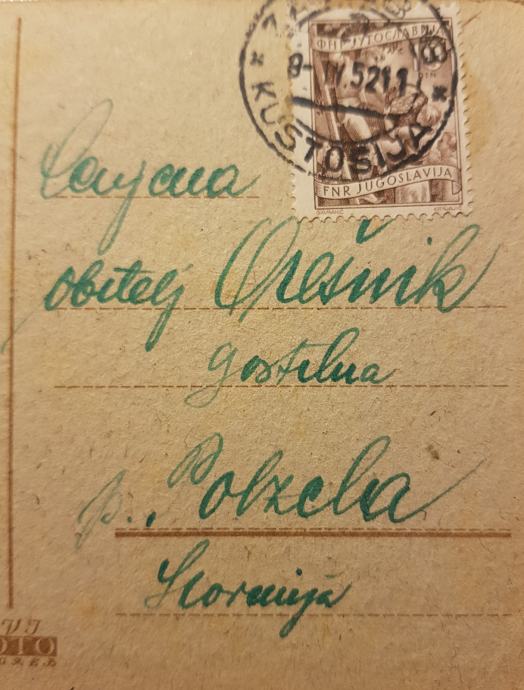 ФНР ЈУГОСЛАВИЈА
8-IV.52 11
KUSTOŠIJA
FNR JUGOSLAVIJA
Cenjena
obitelj Orešnik
gostilna
p., Polzela
Slovenija
OTO